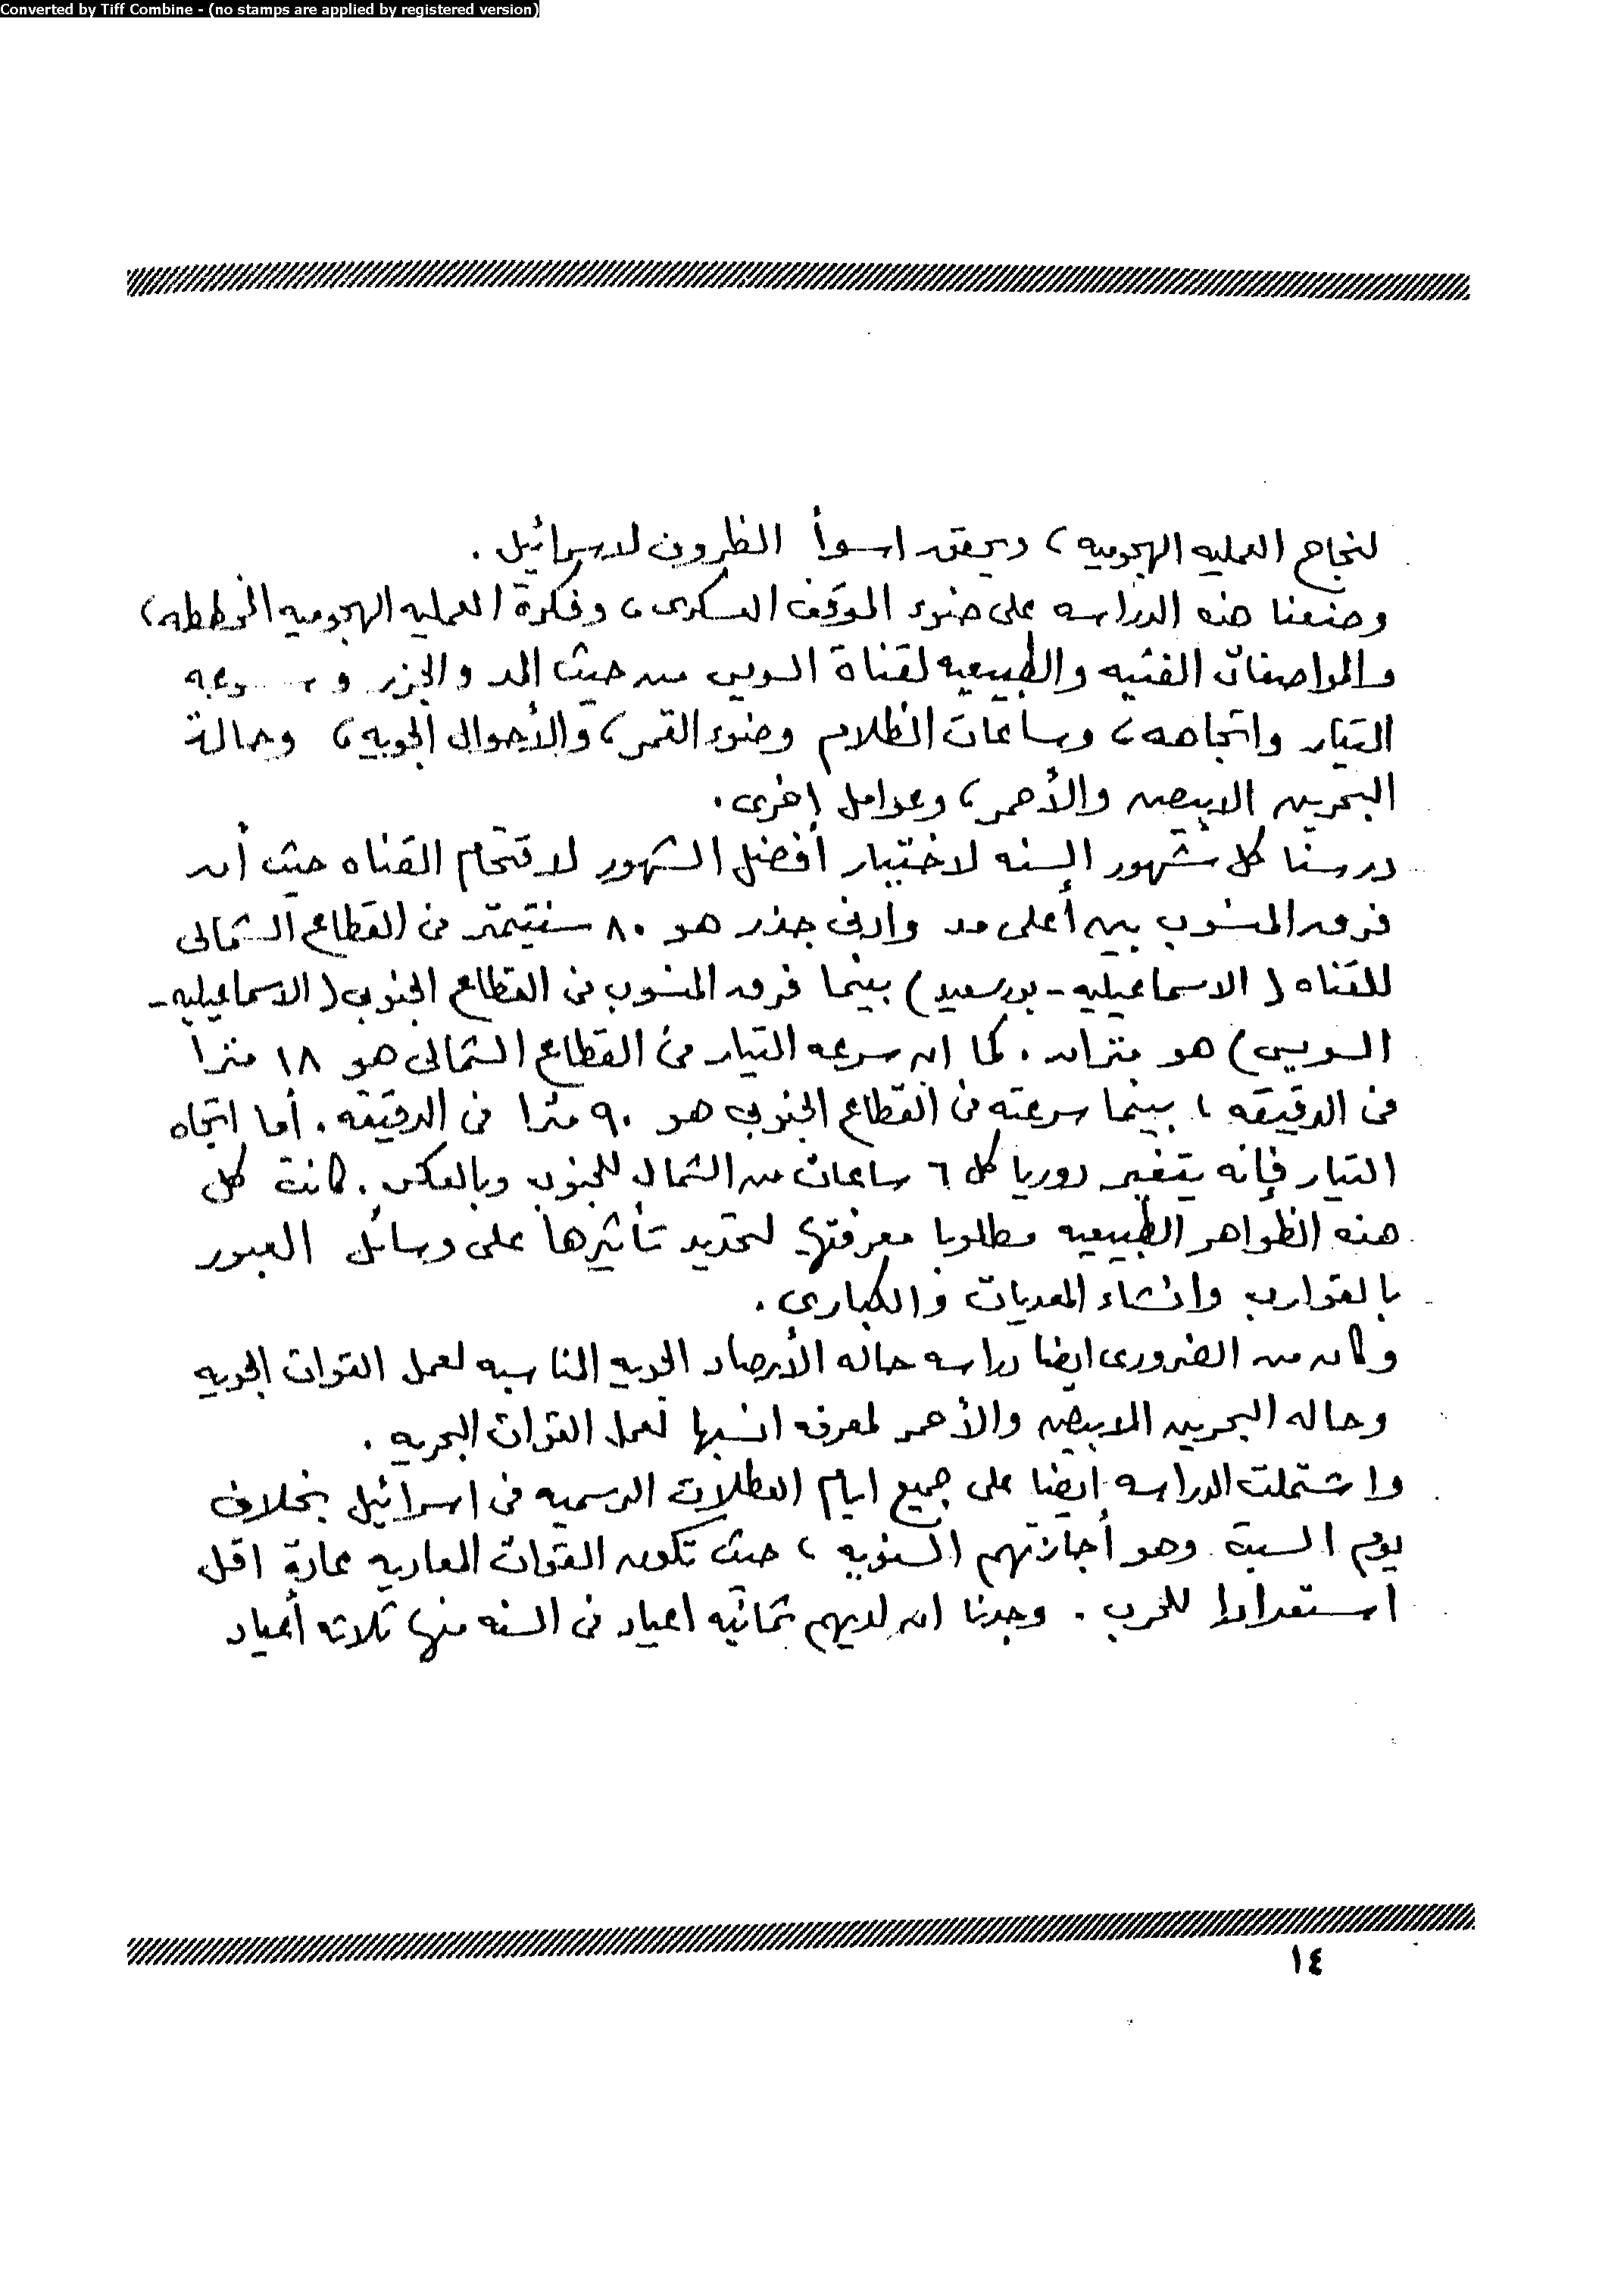 Converted by Tiff Combine - (no stamps are applied by registered version)
لنجاح العمليه الهجوميه ، ويحقق اسوأ الظروف لاسرائيل .
وضعنا هذه الدراسه على ضوء الموقف العسكرى ، وفكرة العمليه الهجوميه المخططه ،
والمواصفات الفنيه والطبيعيه لقناة السويس من حيث المد والجزر وسرعه
التيار واتجاهه ، وساعات الظلام وضوء القمر ، والأحوال الجويه ، وحالة
البحرين الابيض والأحمر ، وعوامل اخرى .
درسنا كل شهور السنه لاختيار أفضل الشهور لاقتحام القناه حيث أن
فرق المنسوب بين أعلى مد وأدنى جذر هو ٨٠ سنتيمتر فى القطاع الشمالى
للقناه ( الاسماعيليه - بورسعيد ) بينما فرق المنسوب فى القطاع الجنوبى ( الاسماعيليه -
السويس ) هو متران . كما ان سرعه التيار فى القطاع الشمالى هو ١٨ مترا
فى الدقيقه ، بينما سرعته فى القطاع الجنوبى هو ٩٠ مترا فى الدقيقه . أما اتجاه
التيار فإنه يتغير دوريا كل ٦ ساعات من الشمال للجنوب وبالعكس . كانت كل
هذه الظواهر الطبيعيه مطلوبا معرفتها لتحديد تأثيرها على وسائل العبور
بالقوارب وانشاء المعديات والكبارى .
وكان من الضرورى ايضا دراسه حاله الأرصاد الجويه المناسبه لعمل القوات الجويه
وحاله البحرين الابيض والأحمر لمعرفه انسبها لعمل القوات البحريه .
واشتملت الدراسه ايضا على جميع ايام العطلات الرسميه فى اسرائيل بخلاف
يوم السبت وهو أجازتهم السنويه ، حيث تكون القوات المعاديه عادة اقل
استعدادا للحرب . وجدنا ان لديهم ثمانيه اعياد فى السنه منها ثلاثه أعياد
١٤